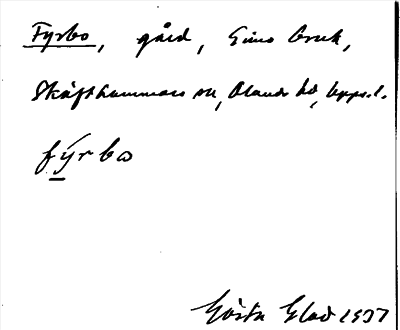 Fyrbo, gård, Gimo bruk,
Skäfthammars sn, Olands hd, Upps. l.
fỳ̱rbo
Gösta Elad 1937